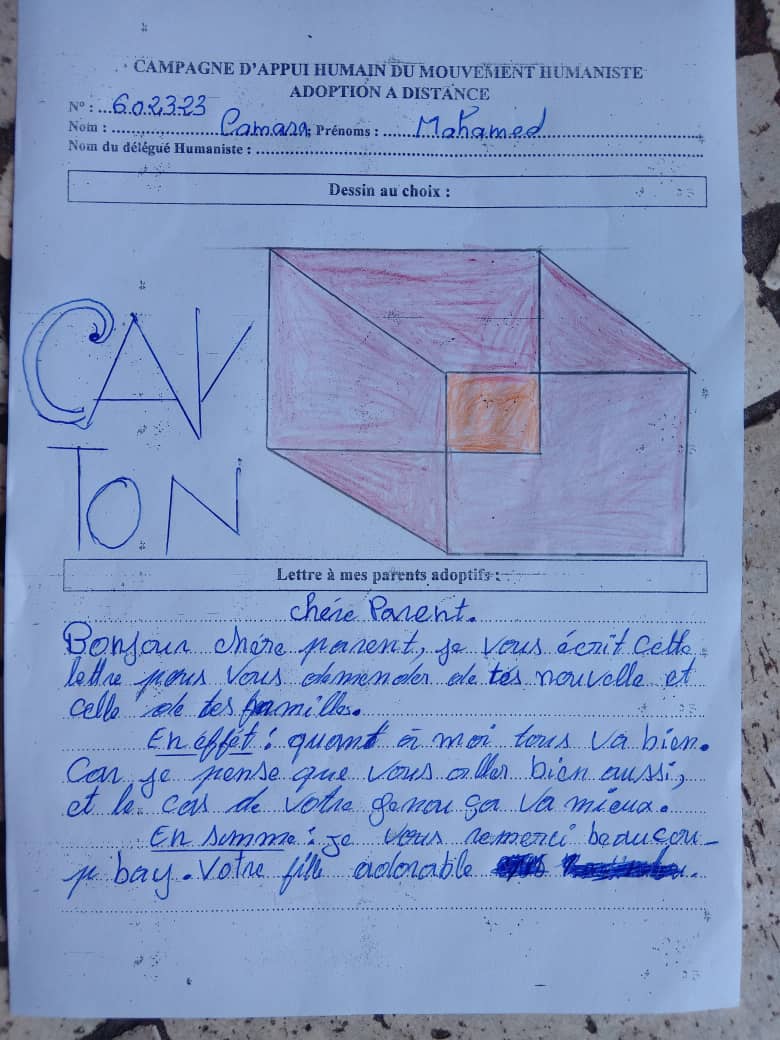 CAMPAGNE D'APPUI HUMAIN DU MOUVEMENT HUMANISTE
ADOPTION A DISTANCE
N° : 602323
Nom : Camara, Prénoms : Mohamed
Nom du délégué Humaniste :
Dessin au choix :
CAY
TON
Lettre à mes parents adoptifs :
Chère Parent.
Bonjour chère parent, je vous écrit cette
lettre pour vous demender de tes nouvelle et
celle de tes familles.
En effet : quant à moi tous va bien.
Car je pense que vous aller bien aussi,
et le cas de votre genou ça va mieux.
En somme : je vous remerci beaucou-
p bay. Votre fille adorable